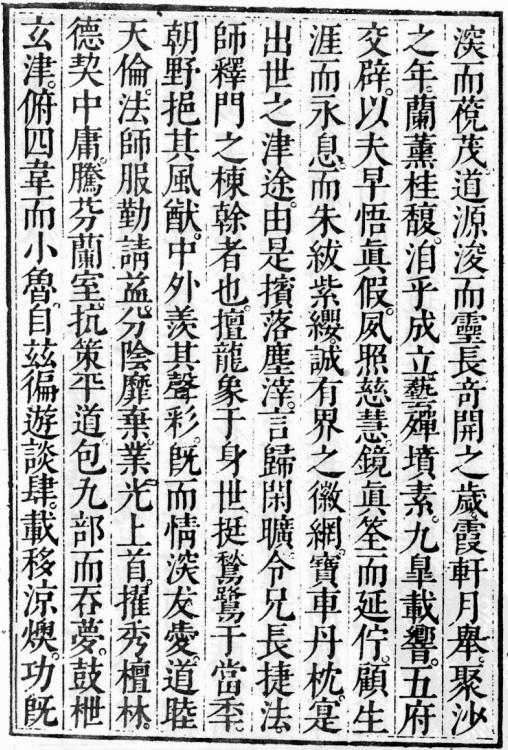 湥而葂茂。道源浚而靈長。奇開之歲。霞軒月舉。聚沙
之年。蘭薰桂馥。洎乎成立。藝殫墳素。九臯載響。五府
交辟。以夫早悟眞假。夙照慈慧。鏡眞筌而延佇。顧生
涯而永息。而朱紱紫纓。誠有界之徽網。寶車丹枕。寔
出世之津途。由是擯落塵滓。言歸閑曠。令兄長捷法
師。釋門之棟幹者也。擅龍象于身世。挺鶖鷺于當秊。
朝野挹其風猷。中外羨其聲彩。旣而情湥友愛。道睦
天倫。法師服勤請益。分陰靡棄。業光上首。擢秀檀林。
德契中庸。騰芬蘭室。抗策平道。包九部而吞夢。鼓枻
玄津。俯四韋而小魯。自茲徧遊談肆。載移涼燠。功旣